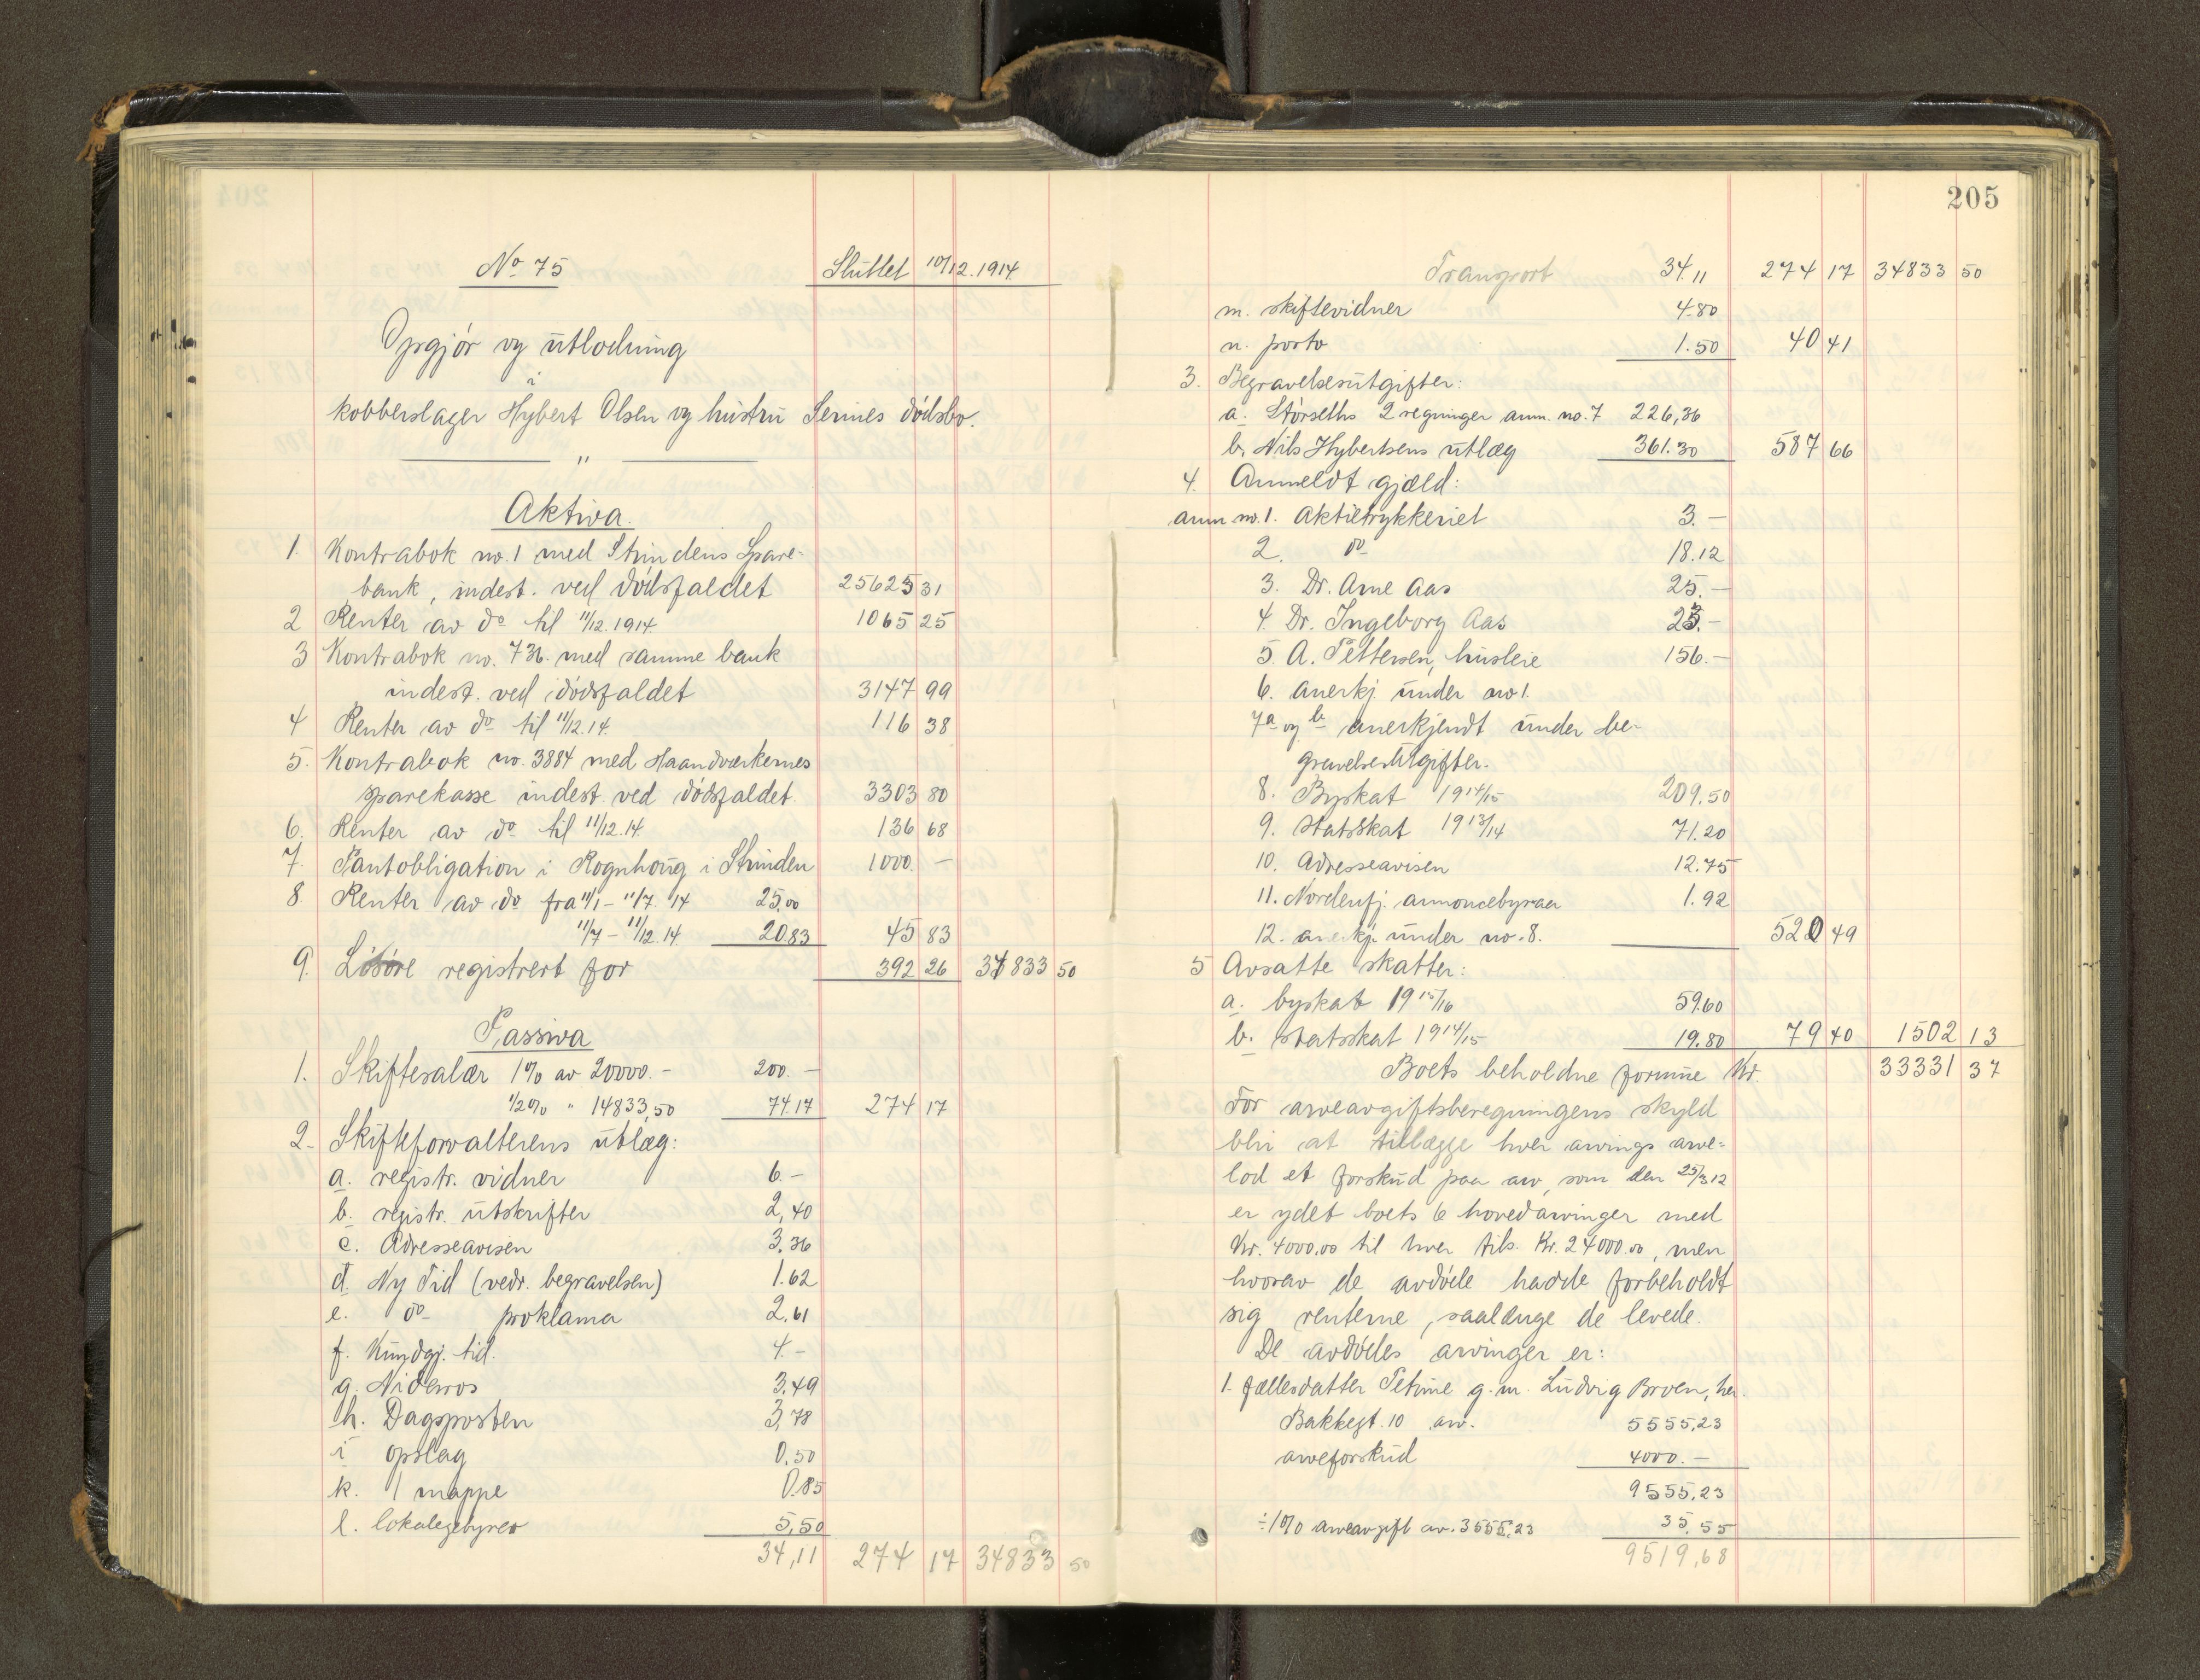 No 75 Sluttet 10/12.1914.
Opgjør og utlodning
i
kobberslager Hybert Olsen og hustru Serines dødsbo.
"
Aktiva.
1. Kontrabok no. 1 med Strindens Spare-
bank, indest. ved dødsfaldet 25625 31
2 Renter av do til 11/12.1914. 1065 25
3 Kontrabok no. 736. med samme bank
indest. ved dødsfaldet 3147 99
4 Renter av do til 11/12.14. 116 38
5. Kontrabok no. 3884 med Haandværkernes
sparekasse indest. ved dødsfaldet. 3303 80
6. Renter av do til 11/12.14. 136 68
7. Pantobligation i Rognhoug i Strinden 1000. -
8 Renter av do fra 11/1 - 11/7. 14 25,00
11/7 - 11/12.14 20.83 45 83
9. Løsøre registrert for 392 26 34833 50
Passiva
1. Skiftesalær 1% av 20000.- 200. -
1/2% " 14833,50 74.17 274 17
2. Skifteforvalterens utlæg:
a. registr. vidner 6.-
b. registr. utskrifter 2,40
c. Adresseavisen 3.36
d. Ny Tid (vedr. begravelsen) 1.62
e. do proklama 2.61
f. Kundgj. tid. 4.-
g. Nidaros 3.49
h. Dagsposten 3,78
i opslag 0.50
k. 1 mappe 0.85
l. lokalegebyrer 5,50
34,11 274 17 34833 50
205
Transport 34.11 274 17 34833 50
m. skiftevidner 4.80
n. porto 1.50 40 41
3. Begravelsesutgifter:
a. Størseths 2 regninger anm. no. 7 226,36
b. Nils Hybertsens utlæg 361.30 587 66
4. Anmeldt gjæld:
anm no. 1. Aktietrykkeriet 3.-
2. do 18.12
3. Dr. Arne Aas 25.-
4. Dr. Ingeborg Aas 23.-
5. A. Pettersen, husleie 156.-
6. anerkj. under no 1.
7a og b anerkjendt under be-
gravelsesutgifter.
8. Byskat 1914/15 209.50
9. statsskat 1913/14 71.20
10. Adresseavisen 12.75
11. Nordenfj. annoncebyraa 1.92
12. anerkj. under no. 8. 520 49
5 Avsatte skatter:
a. byskat 1915/16 59.60
b. statsskat 1914/15 19.80 79 40 1502 13
Boets beholdne formue Kr. 33331 37
For arveavgiftsberegningens skyld
blir at tillægge hver arvings arve-
lod et forskud paa arv, som den 25/3 12
er ydet boets 6 hovedarvinger med
Kr. 4000.00 til hver tils. Kr. 24000.00, men
hvorav de avdøde hadde forbeholdt
sig renterne, saalænge de levede.
De avdødes arvinger er:
1. fællesdatter Petrine g. m. Ludvig Broen, her.
Bakkegt. 10 arv. 5555,23
arveforskud 4000. -
9555,23
÷ 1% arveavgift av. 3555,23 35,55
9519,68